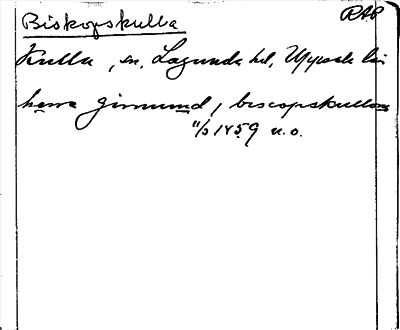 Biskopskulla RAP
Kulla, sn, Lagunda hd, Uppsala län
herra Girmund, biscopskulla
11/3 1459 u.o.